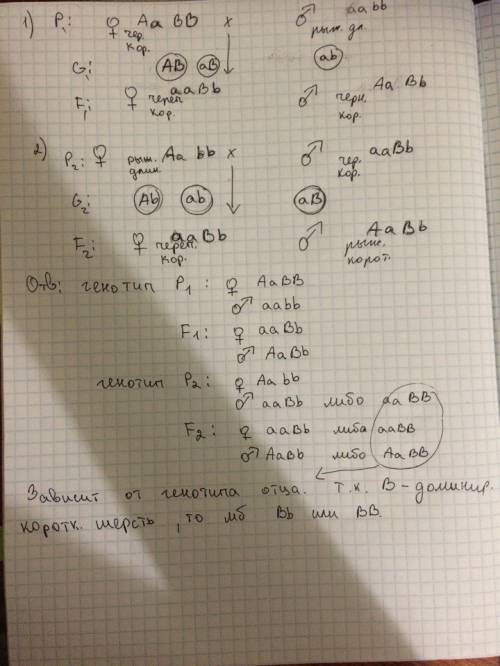 1) P₁: ♀ Aa BB x ♂ aabb
чер. кор. рыж. дл.
G₁: AB aB ab
F₁: ♀ aaBb ♂ Aa Bb
череп. кор. черн. кор.
2) P₂: ♀ рыж. длин. Aa bb x ♂ чер. кор. aaBb
G₂: Ab ab aB
F₂: ♀ aaBb ♂ AaBb
череп. кор. рыж. корот.
Отв: генотип P₁: ♀ AaBB
♂ aabb
F₁: ♀ aaBb
♂ AaBb
генотип P₂: ♀ Aabb
♂ aaBb либо aaBB
F₂: ♀ aaBb либа aaBB
♂ AaBb либо AaBB
Зависит от генотипа отца. т.к. B - доминир.
коротк. шерсть, то мб Bb или BB.